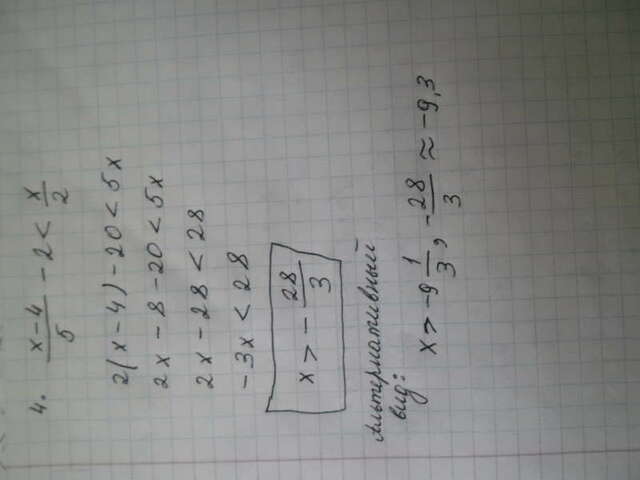 4. (x-4)/5 - 2 < x/2
2(x-4)-20<5x
2x-8-20<5x
2x-28<28
-3x<28
x>-28/3
Альтернативный
вид:
x>-9 1/3, -28/3≈-9,3